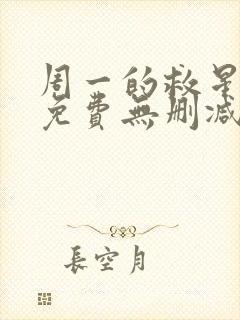 周一的救星
免費無刪減
長空月